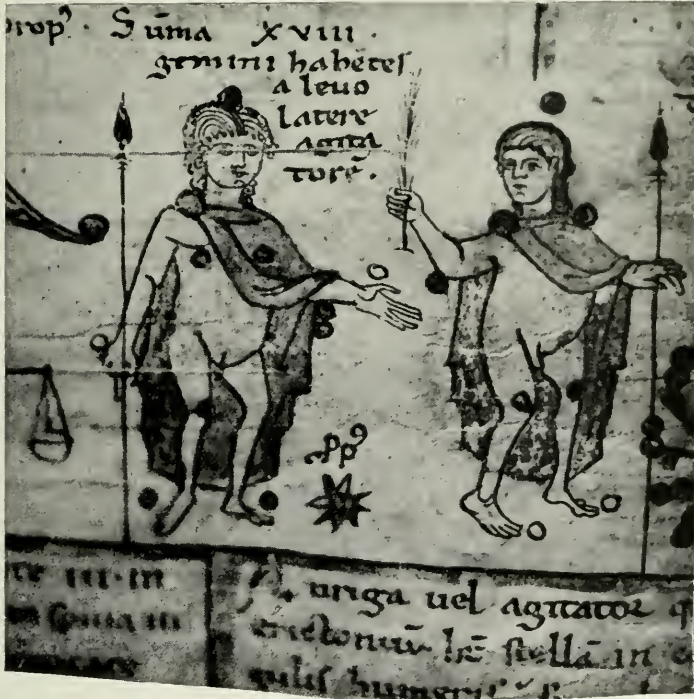 rop᾽. Sūma xviii.
gemini habētes
a leuo
latere
agita
torē.
pp᾽
iii · in
Auriga uel agitator q
erictoniū hc̄ stellā in
gulis humeris